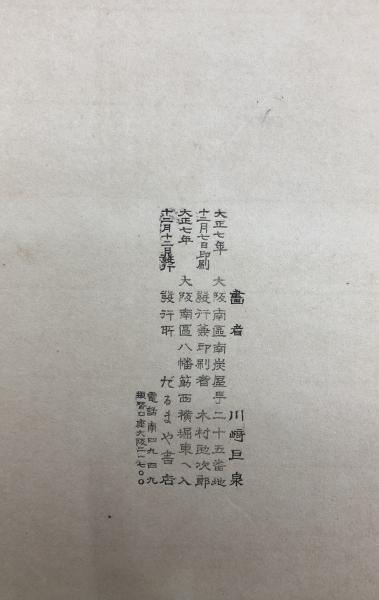 畫者 川﨑巨泉
大正七年 大阪南區南炭屋町二十五番地
十二月七日印刷 發行兼印刷者 木村助次郎
大正七年 大阪南區八幡筋西横堀東へ入
十二月十二日發行 發行所 だるまや書店
電話南四九四九
振替口座大阪三一七〇〇